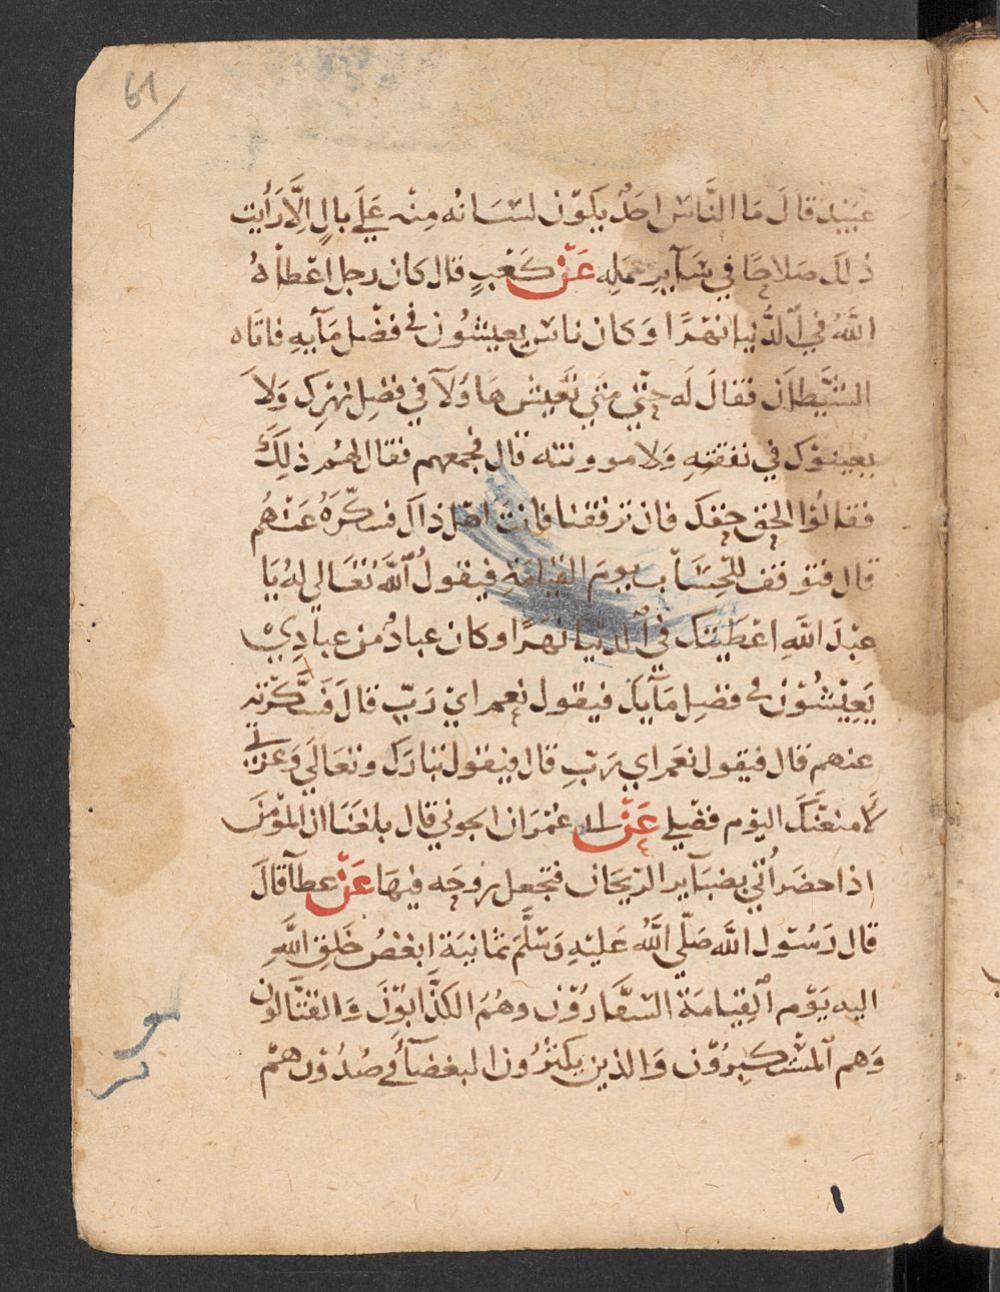 61
عبيد قال ما الناس احد يكون لسانه منه على بال الا رأيت
ذلك صلاحا في سآير عمله عن كعب قال كان رجل اعطاه
الله في الدنيا نهرا وكان ناس يعيشون في فضل مآيه فاتاه
الشيطان فقال له حتي متي تعيش هاولآ في فضل نهرك ولا
يعينوك في نفقته ولا موونته قال فجمعهم فقال لهم ذلك
فقالوا الحق حقك فان ترفقنا فانت اهل ذاك فسكره عنهم
قال فتوقف للحساب يوم القيامة فيقول الله تعالي له يا
عبد الله اعطيتك في الدنيا نهرا وكان عباد من عبادي
يعيشون في فضل مآيك فيقول نعم اي رب قال فسكرته
عنهم قال فيقول نعم اي رب قال فيقول تبارك وتعالي وعزتي
لامنعنك اليوم فضلي عن ابي عمران الجوني قال بلغنا ان المؤمن
اذا حضر أتي بضبآير الريحان فتجعل روحه فيها عن عطآ قال
قال رسول الله صلي الله عليه وسلم ثمانية ابغض خلق الله
اليه يوم القيامة السقارون وهم الكذابون والقتالون
وهم المستكبرون والذين يكنزون البغضآ في صدورهم